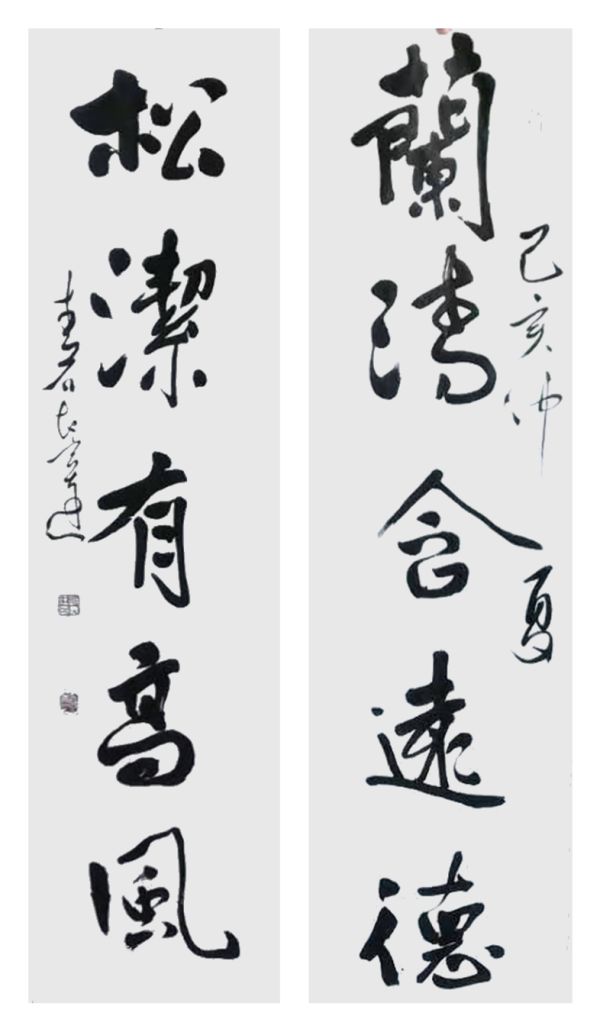 蘭清含遠德
己亥仲夏
松潔有高風